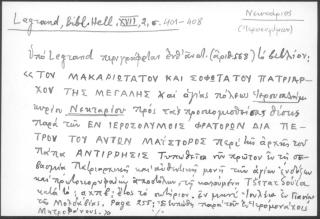 Legrand, Bibl. Hell. XVII, 2, σ. 401-408
Νεκτάριος
(Ιεροσολύμων)
Ὑπὸ Legrand περιγράφεται (ἀριθ. 568) τὸ βιβλίον:
«ΤΟΥ ΜΑΚΑΡΙΩΤΑΤΟΥ ΚΑΙ ΣΟΦΩΤΑΤΟΥ ΠΑΤΡΙΑΡ-
ΧΟΥ ΤΗΣ ΜΕΓΑΛΗΣ καὶ ἁγίας πόλεως Ἱερουσαλὴμ
κυρίου Νεκταρίου πρὸς τὰς προσκομισθείσας θέσεις
παρὰ τῶν ΕΝ ΙΕΡΟΣΟΛΥΜΟΙΣ ΦΡΑΤΟΡΩΝ ΔΙΑ ΠΕ-
ΤΡΟΥ ΤΟΥ ΑΥΤΩΝ ΜΑΪΣΤΟΡΟΣ περὶ τῆς ἀρχῆς τοῦ
πάπα ΑΝΤΙΡΡΗΣΙΣ Τυπωθεῖσα νῦν πρῶτον ἐν τῇ σε-
βασμίᾳ Πατριαρχικῇ καὶ αὐθεντικῇ μονῇ τῶν ἁγίων ἐνδόξων
καὶ πρωτοκορυφαίων ἀποστόλων τῇ καλουμένῃ Τζετατζούια
κατὰ τὸ ͵αχπβ΄ ἔτος τὸ σωτήριον ἐν μηνὶ Ἰουλίῳ ἐν Γιασίῳ
τῆς Μολδαβίας. Page 255: Ἐτυπώθη παρὰ τοῦ Ἱερομονάχοις
Μητροφάνους.»